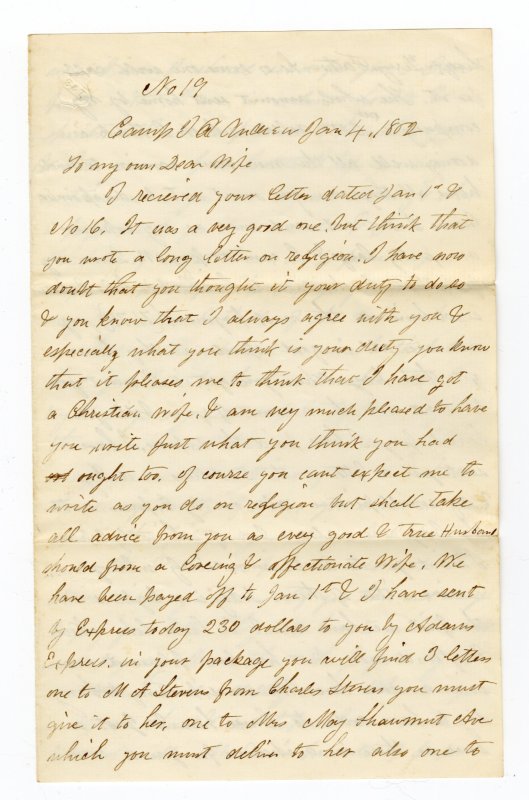 No 19
Camp J A Andrew Jan 4, 1862
To my own Dear Wife
I recieved your letter dated Jan 1st &
No 16. It was a very good one, but think that
you wrote a long letter on religion. I have now
doubt that you thought it your duty to do so
& you know that I always agree with you &
especially what you think is your duty you know
that it pleases me to think that I have got
a Christian wife. I am very much pleased to have
you write Just what you think you had
ought too. of course you cant expect me to
write as you do on religion but shall take
all advice from you as every good & true Husband
should from a loveing & affectionate Wife. We
have been payed off to Jan 1st & I have sent
by Express today 230 dollars to you by Adams
Express. in your package you will find 3 letters
one to M A Stevens from Charles Stevens you must
give it to her, one to Mrs May Shawmut Ave
which you must deliver to her also one to